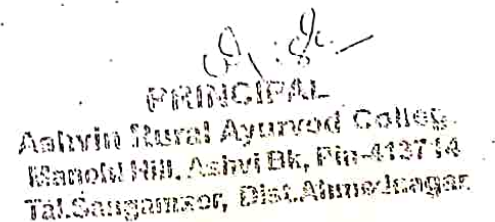 PRINCIPAL
Ashvin Rural Ayurved Colleg
Manchi Hill, Ashvi BK, Pin-413714
Tal.Sangamner, Dist.Ahmednagar.